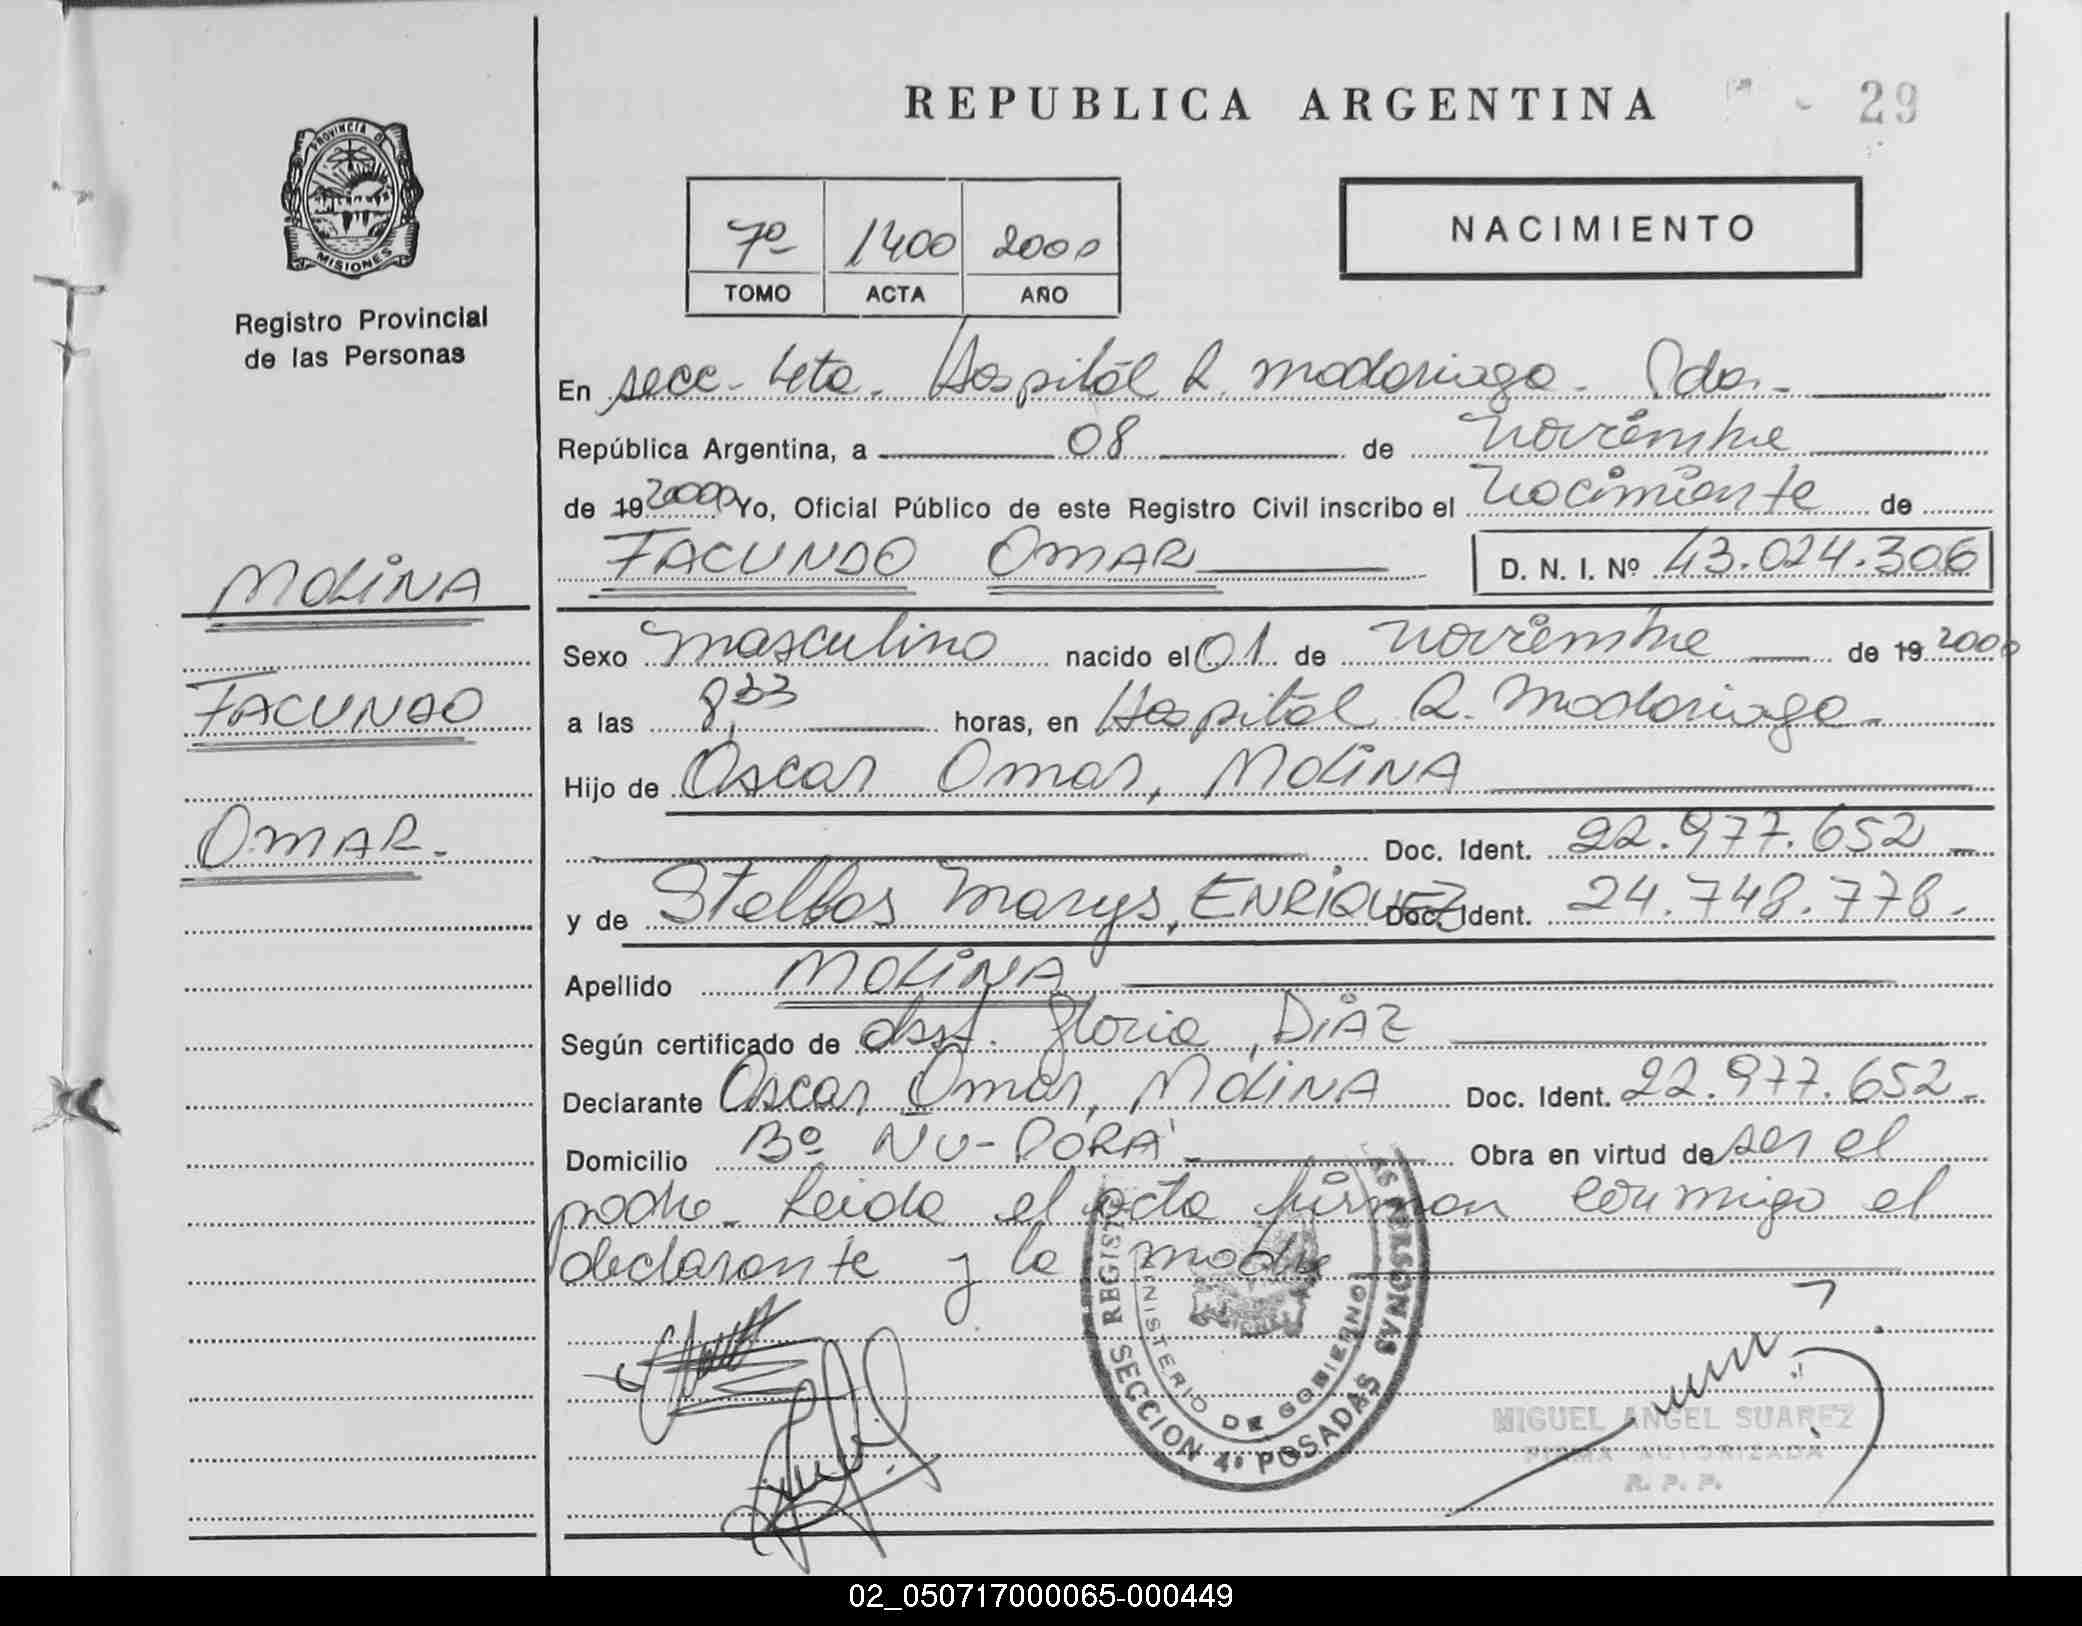 REPUBLICA ARGENTINA
29
PROVINCIA DE
MISIONES
Registro Provincial
de las Personas
7º 1400 2000
TOMO ACTA AÑO
NACIMIENTO
En secc. 4ta. Hospital R. Madariaga. Pdas.
República Argentina, a 08 de noviembre
de 19 2000 Yo, Oficial Público de este Registro Civil inscribo el nacimiento de
FACUNDO OMAR D. N. I. Nº 43.024.306
MOLINA
FACUNDO
OMAR.
Sexo masculino nacido el 01 de noviembre de 19 2000
a las 8,33 horas, en Hospital R. Madariaga.
Hijo de Oscar Omar, MOLINA
Doc. Ident. 22.977.652
y de Stellas Marys, ENRIQUEZ Doc. Ident. 24.748.778.
Apellido MOLINA
Según certificado de obst. Gloria, DIAZ
Declarante Oscar Omar, MOLINA Doc. Ident. 22.977.652
Domicilio Bº ÑU-PORA Obra en virtud de ser el
padre. Leida el acta firman conmigo el
declarante y la madre
REGISTRO AS PERSONAS
MINISTERIO DE GOBIERNO
SECCION 4ª POSADAS
MIGUEL ANGEL SUAREZ
FIRMA AUTORIZADA
R. P. P.
02_050717000065-000449